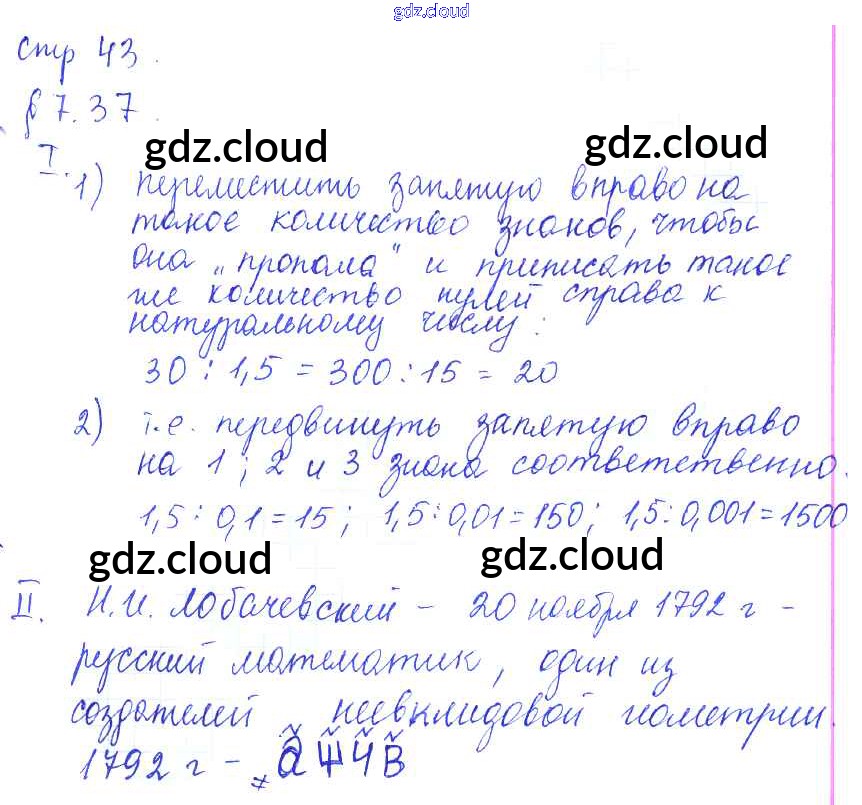 gdz.cloud
стр 43.
§ 7.37.
gdz.cloud gdz.cloud
I. 1) переместить запятую вправо на
такое количество знаков, чтобы
она „пропала“ и приписать такое
же количество нулей справа к
натуральному числу:
30 : 1,5 = 300 : 15 = 20
2) т.е. передвинуть запятую вправо
на 1; 2 и 3 знака соответственно.
1,5 : 0,1 = 15; 1,5 : 0,01 = 150; 1,5 : 0,001 = 1500
gdz.cloud gdz.cloud
II. Н.И. Лобачевский – 20 ноября 1792 г –
русский математик, один из
создателей неевклидовой геометрии.
1792 г –